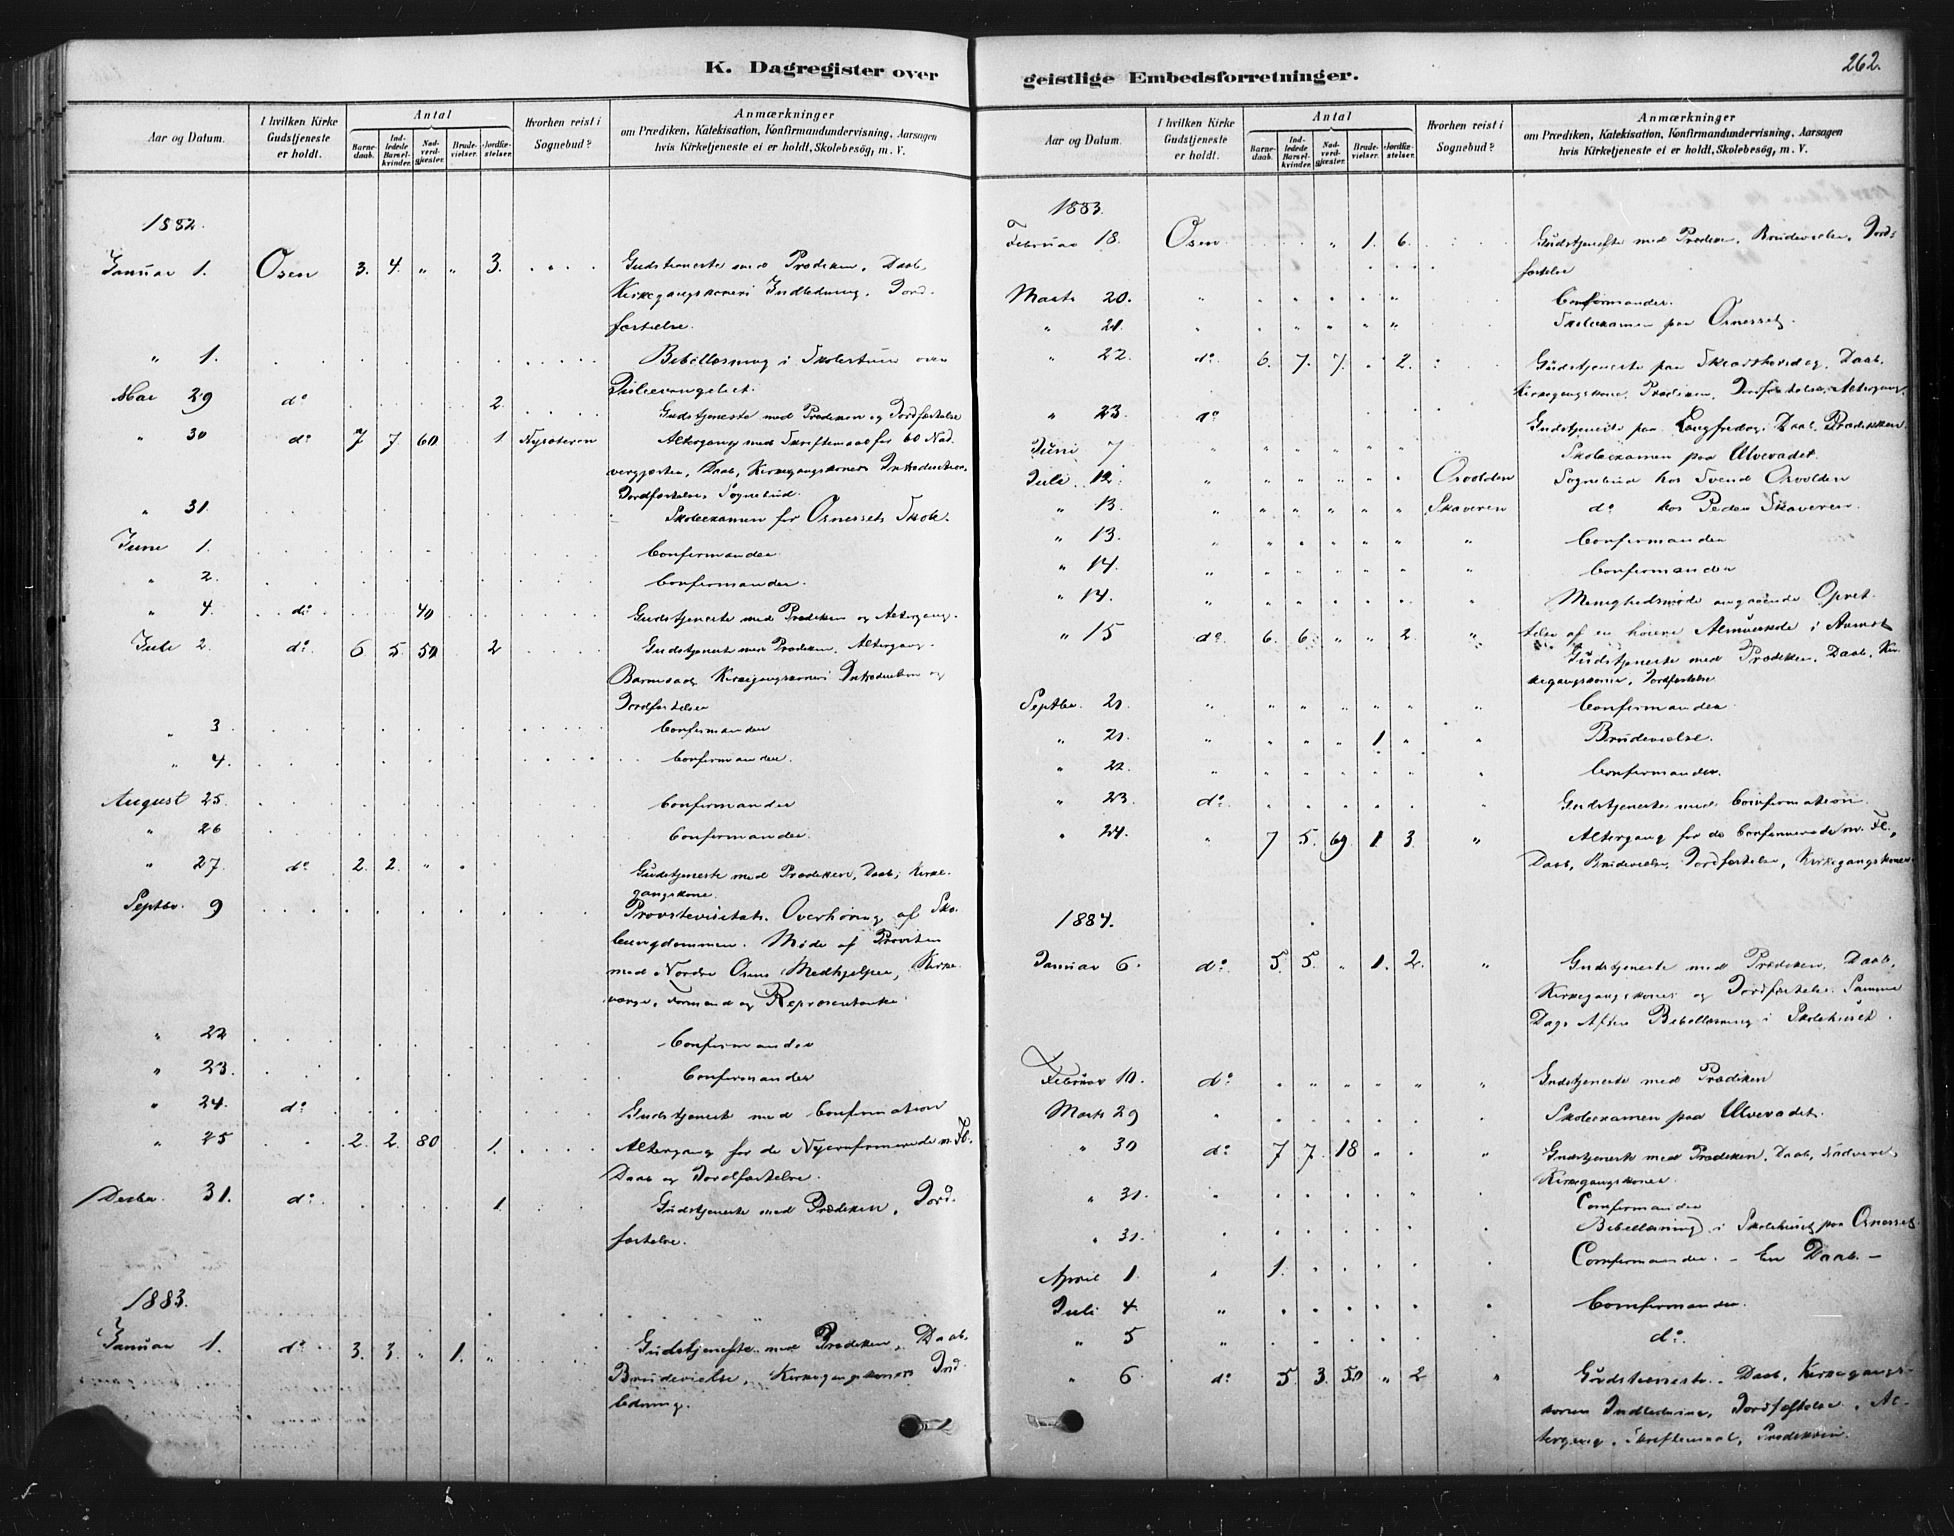 K. Dagregister over
Aar og Datum.
I hvilken Kirke Gudstjeneste er holdt.
Antal
Barnedaab.
Indledede Barselkvinder.
Nadverdgjæster.
Brudevielser.
Jordfæstelser.
Hvorhen reist i Sognebud?
Anmærkninger
om Prædiken, Katekisation, Konfirmandundervisning, Aarsagen
hvis Kirketjeneste ei er holdt, Skolebesøg, m. V.
1882.
Januar 1. Osen 3. 4. " " 3. Gudstjeneste med Prædiken, Daab,
Kirkegangskoners Indledning, Jord-
fæstelse.
" 1. Bibellæsning i Skolestuen over
Juleevangeliet.
Mai 29 do 2. Gudstjeneste med Prædiken og Jordfæstelse
" 30 do 7 7 60 1 Altergang med Skriftemaal for 60 Nad-
vergjæster, Daab, Kirkegangskoners Introduction,
Jordfæstelse, Sognebud.
" 31. Skoleexamen for Osnessets Skole.
Juni 1. Confirmander
" 2. Confirmander.
" 4. do 40 Gudstjeneste med Prædiken og Altergang.
Juli 2. do 6 5 50 2 Gudstjeneste med Prædiken, Altergang,
Barnedaab, Kirkegangskoners Introduction og
Jordfæstelse
" 3. Confirmander
" 4. Confirmander.
August 25. Confirmander
" 26 Confirmander.
" 27. do 2. 2. " Gudstjeneste med Prædiken, Daab, Kirke-
gangskone
Septbr. 9 Provstevisitats. Overhøring af Sko-
leungdommen. Møde af Provsten
med Nordre Osens Medhjelper, Kirke-
verge, Formand og Repræsentanter
" 22 Confirmander
" 23. Confirmander
" 24. do Gudstjeneste med Confirmation
" 25 2. 2. 80 1. Altergang for de Nyconfirmerede m. Fl.
Daab og Jordfæstelse.
Decbr. 31. do 1. Gudstjeneste med Prædiken, Jord-
fæstelse.
1883.
Januar 1. do 3. 3. " 1. " Gudstjeneste med Prædiken, Daab,
Brudevielse, Kirkegangskoners Ind-
ledning.
geistlige Embedsforretninger.
262.
Aar og Datum.
I hvilken Kirke Gudstjeneste er holdt.
Antal
Barnedaab.
Indledede Barselkvinder.
Nadverdgjæster.
Brudevielser.
Jordfæstelser.
Hvorhen reist i Sognebud?
Anmærkninger
om Prædiken, Katekisation, Konfirmandundervisning, Aarsagen
hvis Kirketjeneste ei er holdt, Skolebesøg, m. V.
1883.
Februar 18. Osen " 1. 6. Gudstjeneste med Prædiken, Brudevielse, Jord-
fæstelse
Marts 20. Confirmander.
" 21. Skoleexamen paa Osnesset.
" 22. do 6. 7. 7. " 2. Gudstjeneste paa Skjærthorsdag, Daab,
Kirkegangskone, Prædiken, Jordfæstelse, Altergang
" 23. do Gudstjeneste paa Langfredag, Daab, Prædiken.
Juni 7. Skoleexamen paa Ulvevadet.
Juli 12. Osvolden Sognebud hos Svend Osvolden
" 13. Skaveren do hos Peder Skaveren.
" 13. Confirmander
" 14. Confirmander
" 14. Menighedsmøde angaaende Opret-
telse af en høiere Almueskole i Aamot
" 15 do 6. 6. " " 2. Gudstjeneste med Prædiken, Daab, Kir-
kegangskoner, Jordfæstelse
Septbr. 21. Confirmander
" 21. 1 Brudevielse.
" 22. Confirmander.
" 23. do Gudstjeneste med Confirmation
" 24. 7 5. 69 1. 3. Altergang for de Confirmerede m. Fl.,
Daab, Brudevielse, Jordfæstelse, Kirkegangskoner
1884.
Januar 6. do 5. 5. " 1. 2. Gudstjeneste med Prædiken, Daab,
Kirkegangskoner og Jordfæstelse. Samme
Dags Aften Bibellæsning i Skolehuset.
Februar 10. do Gudstjeneste med Prædiken
Marts 29 Skoleexamen paa Ulvevadet.
" 30 do 7 7. 18 Gudstjeneste med Prædiken, Daab, Nadveret,
Kirkegangskoner
" 31. Confirmander
" 31. Bibellæsning i Skolehuset paa Osnesset.
April 1 1. Confirmander. – En Daab. –
Juli 4. Confirmander.
" 5 do.
" 6. do 5. 3. 50 " 2 Gudstjeneste. Daab, Kirkegangs-
koners Indledning, Jordfæstelse, Al-
tergang, Skriftemaal, Prædiken.